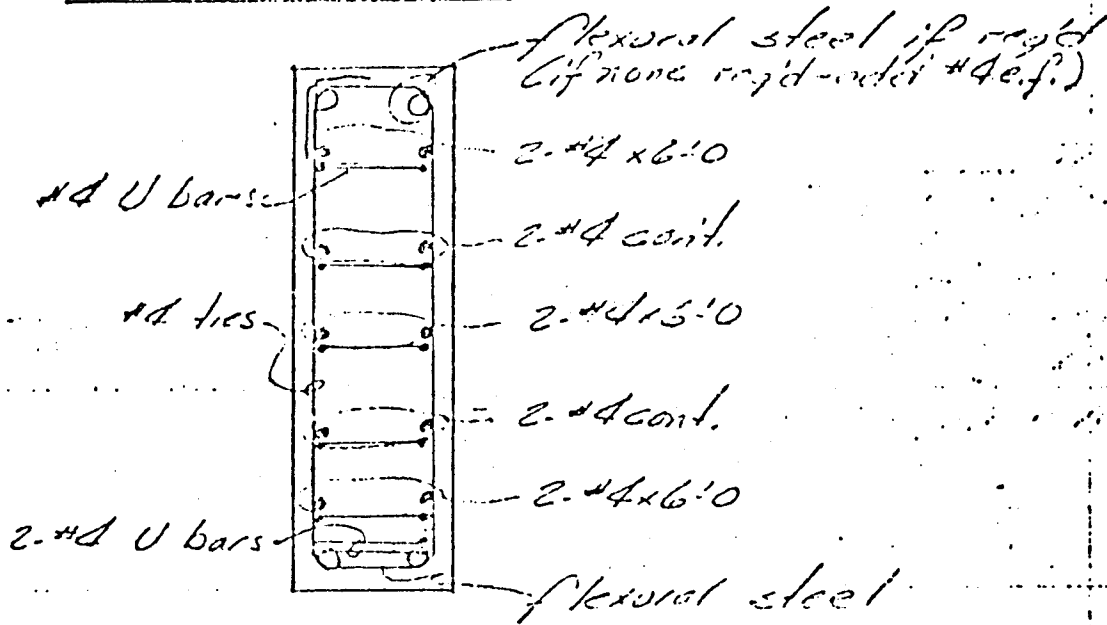 flexural steel if req'd
(if none req'd-order #4 e.f.)
2-#4 x 6'-0
#4 U bars
2-#4 cont.
#4 ties
2-#4x5'-0
2-#4 cont.
2-#4x6'-0
2-#4 U bars
flexural steel